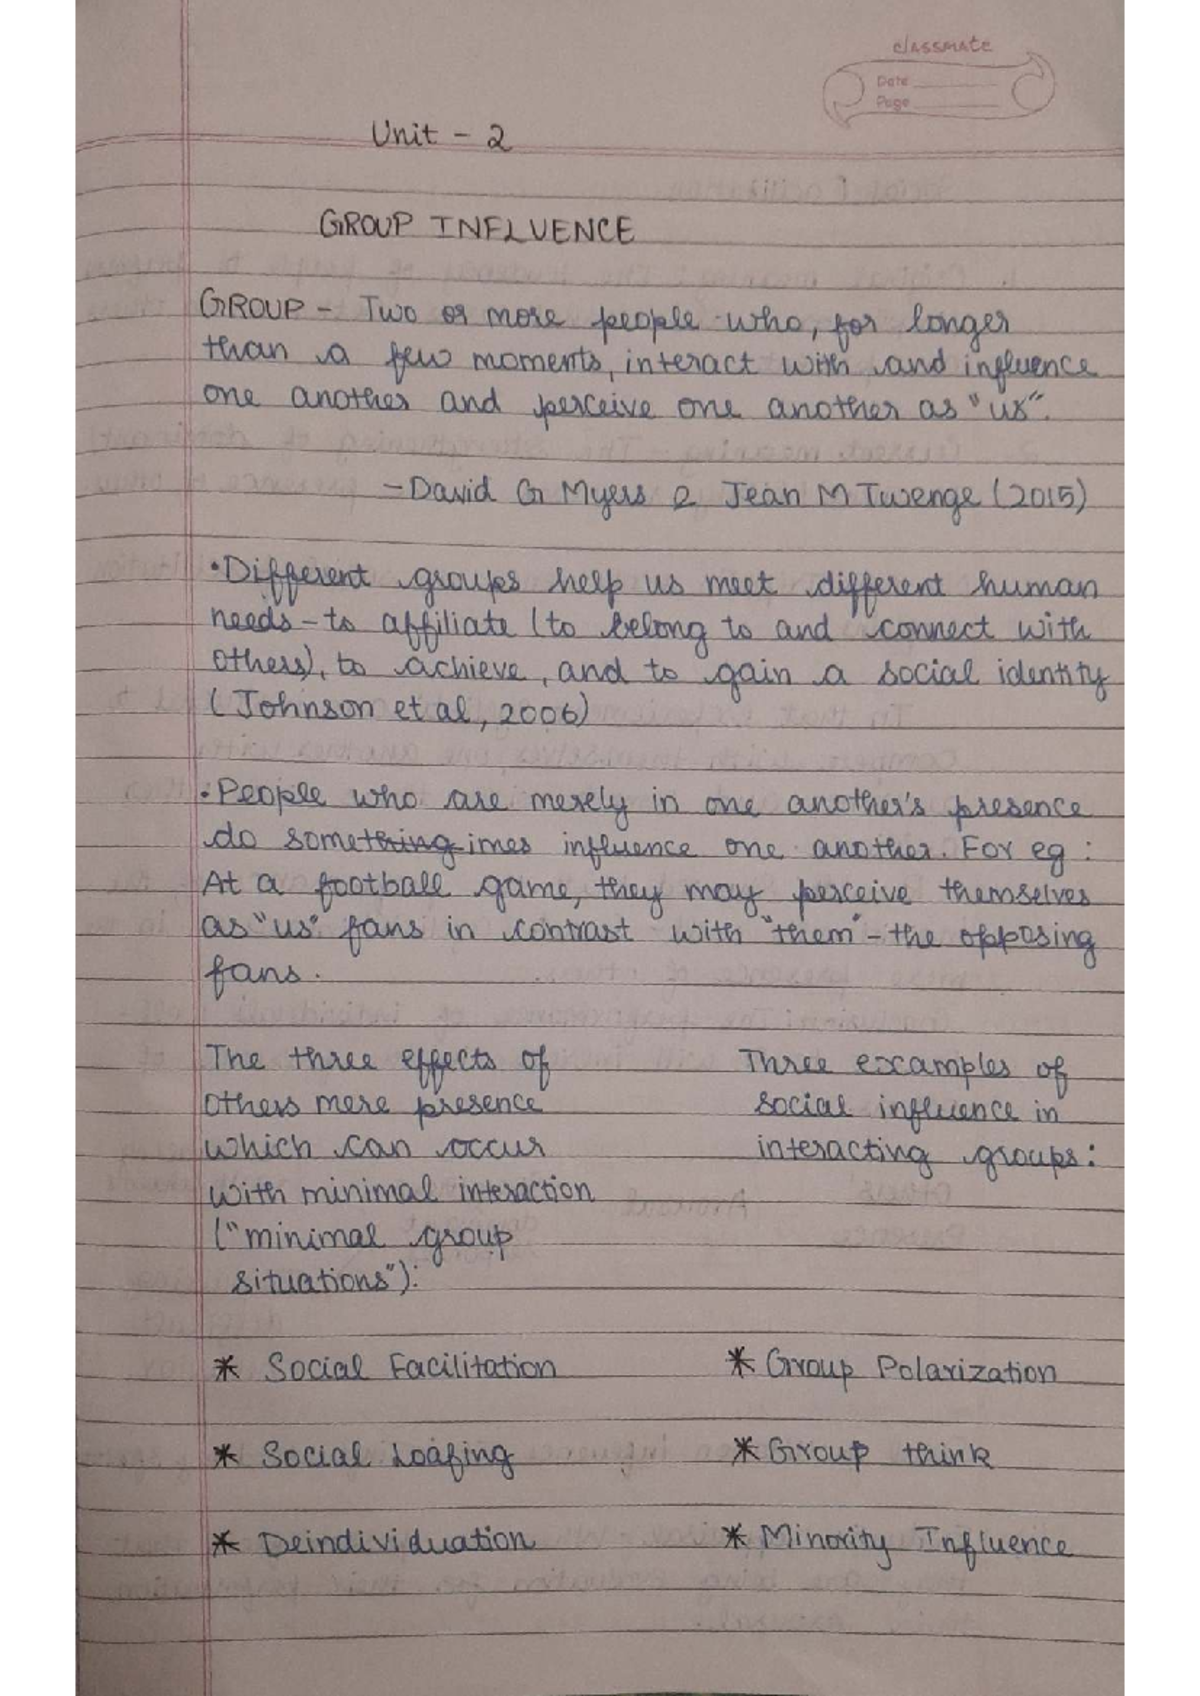 classmate
Date
Page
Unit - 2
GROUP INFLUENCE
GROUP - Two or more people who, for longer
than a few moments, interact with and influence
one another and perceive one another as "us".
- David G Myers & Jean M Twenge (2015)
• Different groups help us meet different human
needs - to affiliate (to belong to and connect with
others), to achieve, and to gain a social identity
(Johnson et al, 2006)
• People who are merely in one another's presence
do something imes influence one another. For eg :
At a football game, they may perceive themselves
as "us" fans in contrast with "them" - the opposing
fans.
The three effects of
others mere presence
which can occur
with minimal interaction
("minimal group
situations"):
* Social Facilitation
* Social Loafing
* Deindividuation
Three examples of
social influence in
interacting groups:
* Group Polarization
* Group think
* Minority Influence